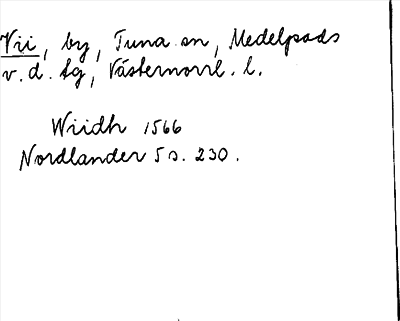 Vii, by, Tuna sn, Medelpads
v. d. tg, Västernorrl. l.
Wiidh 1566
Nordlander 5 s. 230.